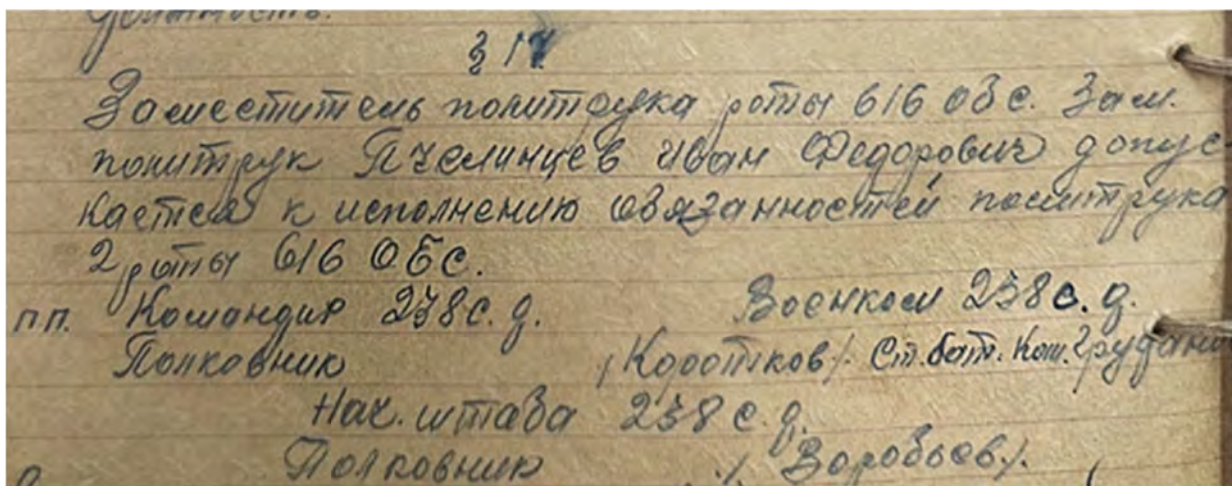 должность.
§ 17
Заместитель политрука роты 616 обс. Зам.
политрук Пчелинцев Иван Федорович допус
кается к исполнению обязанностей политрука
2 роты 616 ОБС.
пп. Командир 238 с. д. Военком 238 с. д.
Полковник /Коротков/. Ст. бат. Ком.
Нач. штаба 238 с. д.
Полковник /Воробьев/.